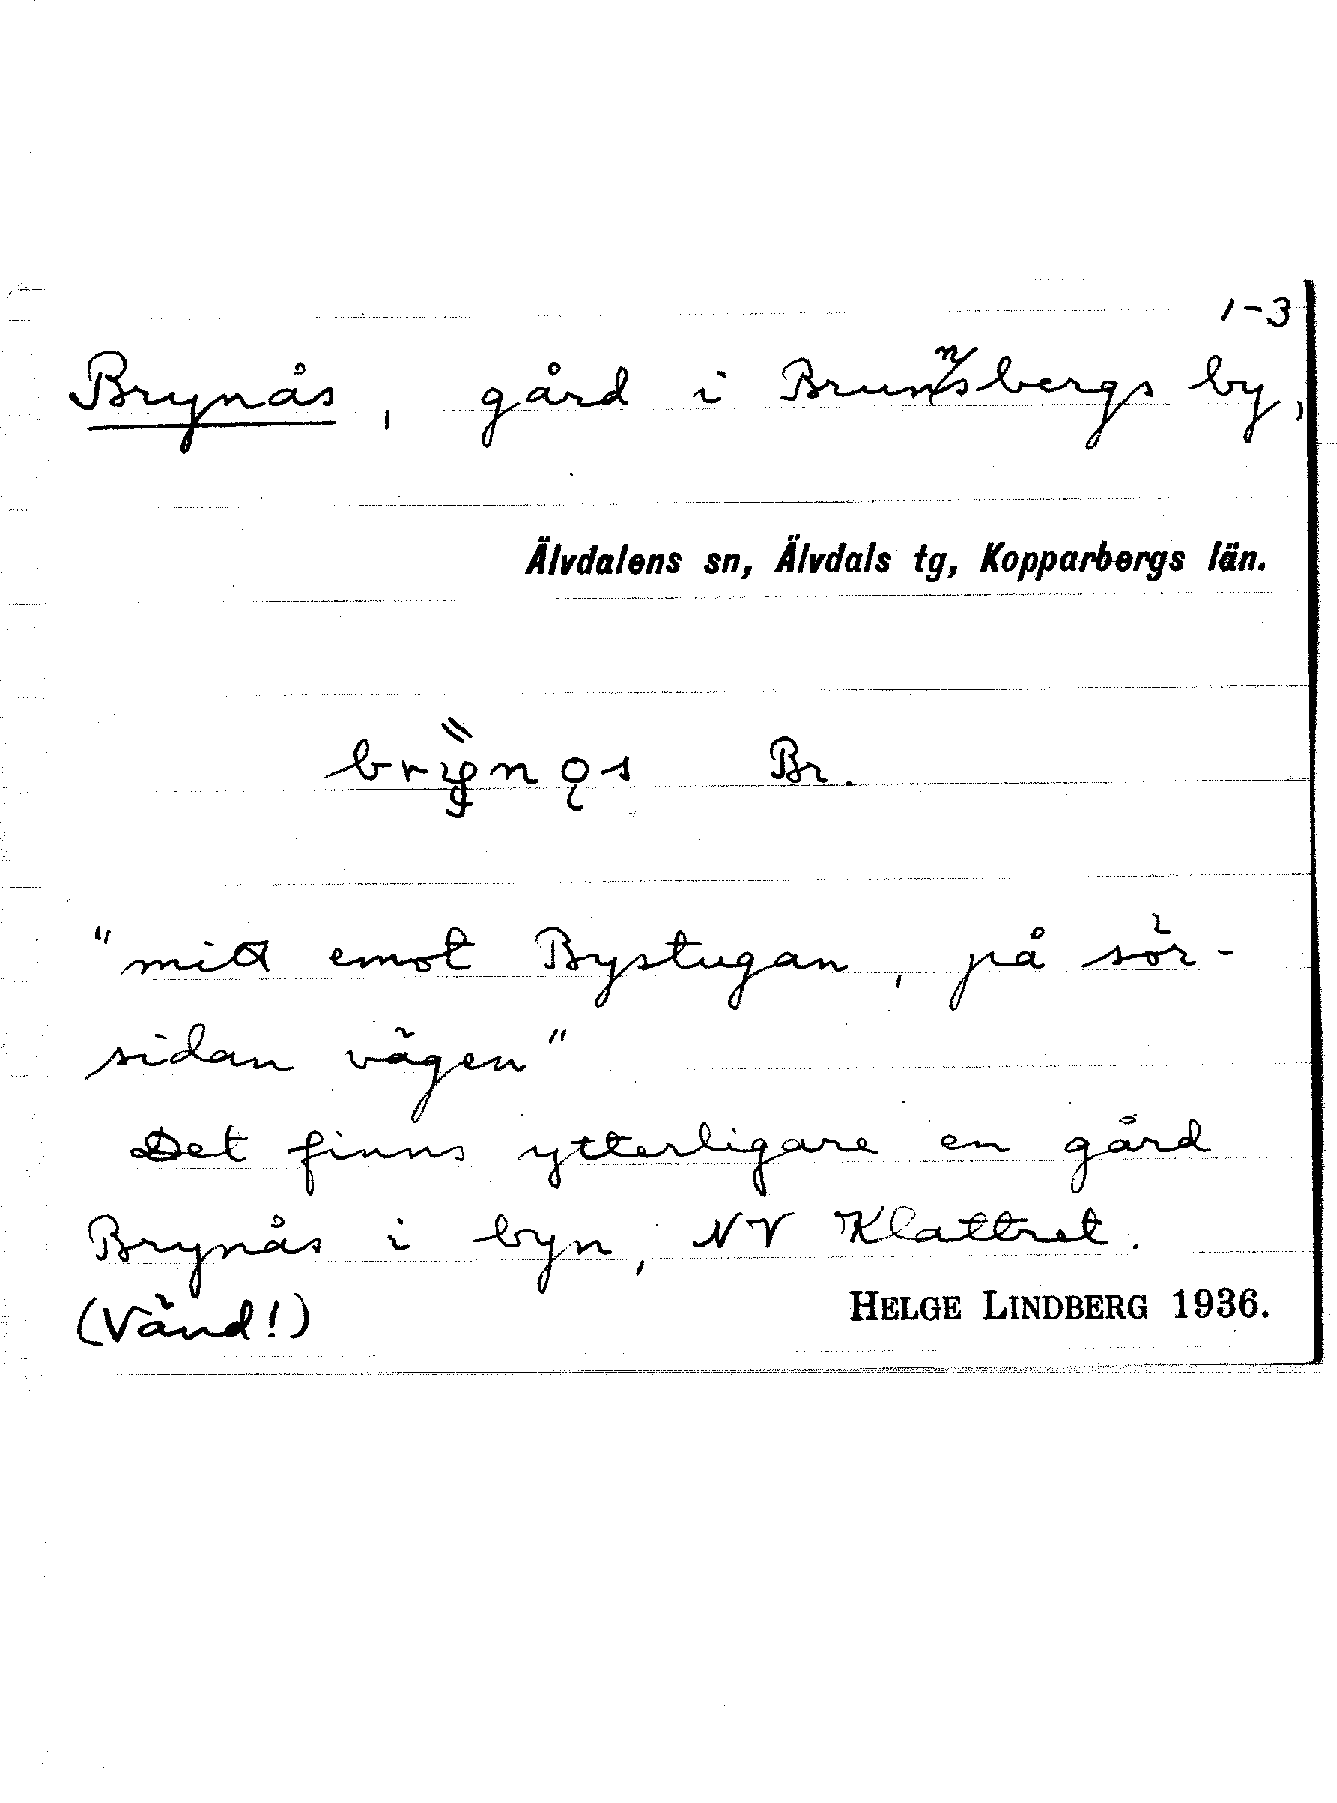 1-3
Brynås, gård i Brunnsbergs by,
Älvdalens sn, Älvdals tg, Kopparbergs län.
Br.
"mitt emot Bystugan, på sör-
sidan vägen"
Det finns ytterligare en gård
Brynås i byn, NV Klattret.
(Vänd!)
HELGE LINDBERG 1936.